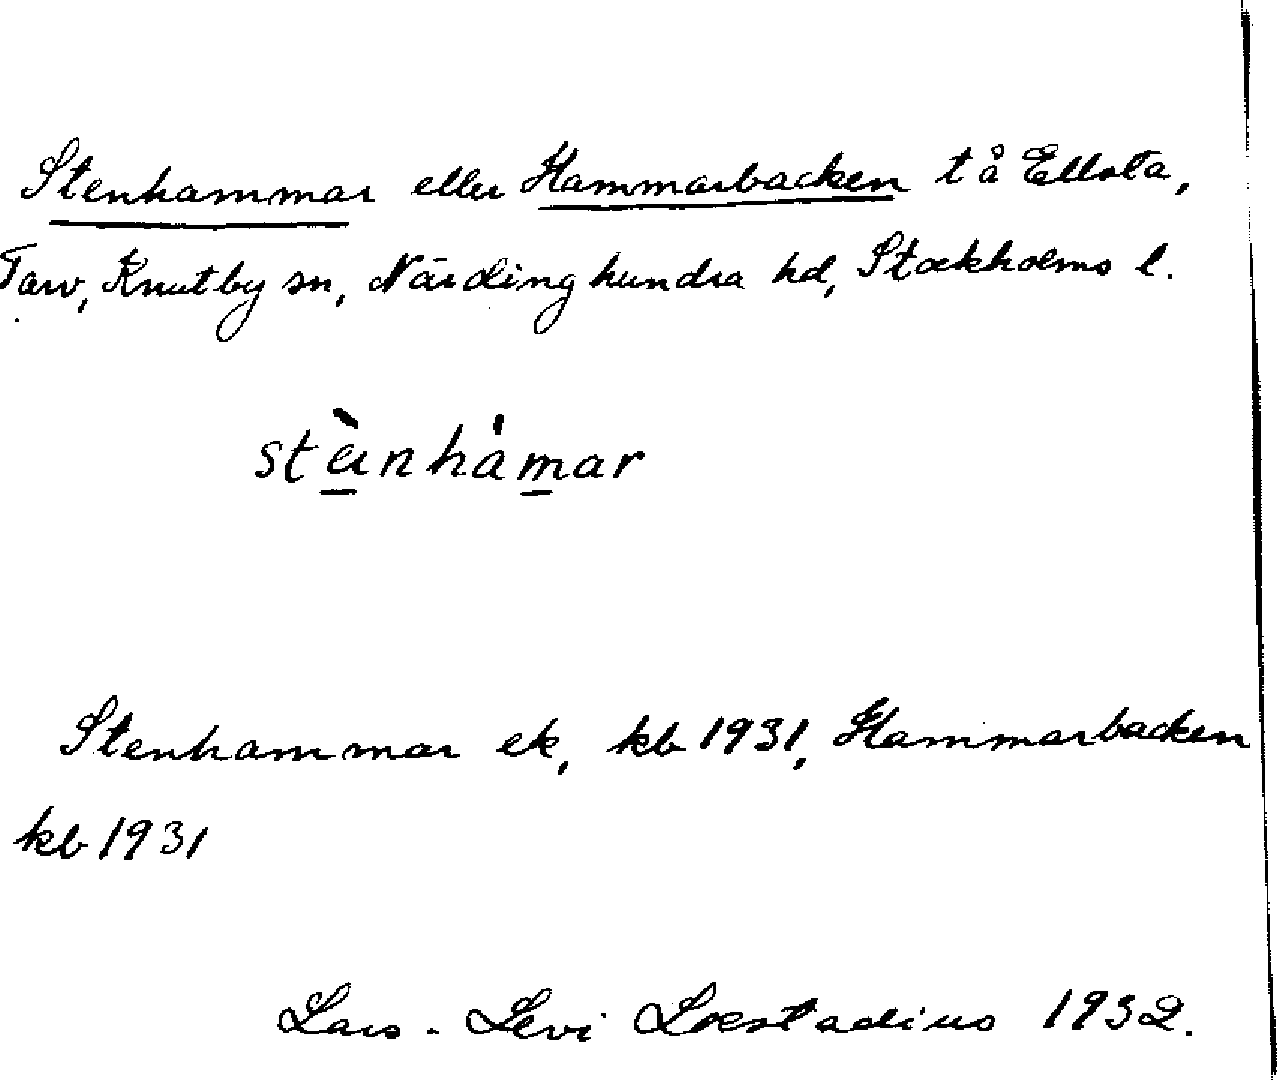 Stenhammar eller Hammarbacken t å Ellsta,
Tarv, Knutby sn, Närdinghundra hd, Stockholms l.
stànhámar
Stenhammar ek, kb 1931, Hammarbacken
kb 1931
Lars-Levi Læstadius 1932.